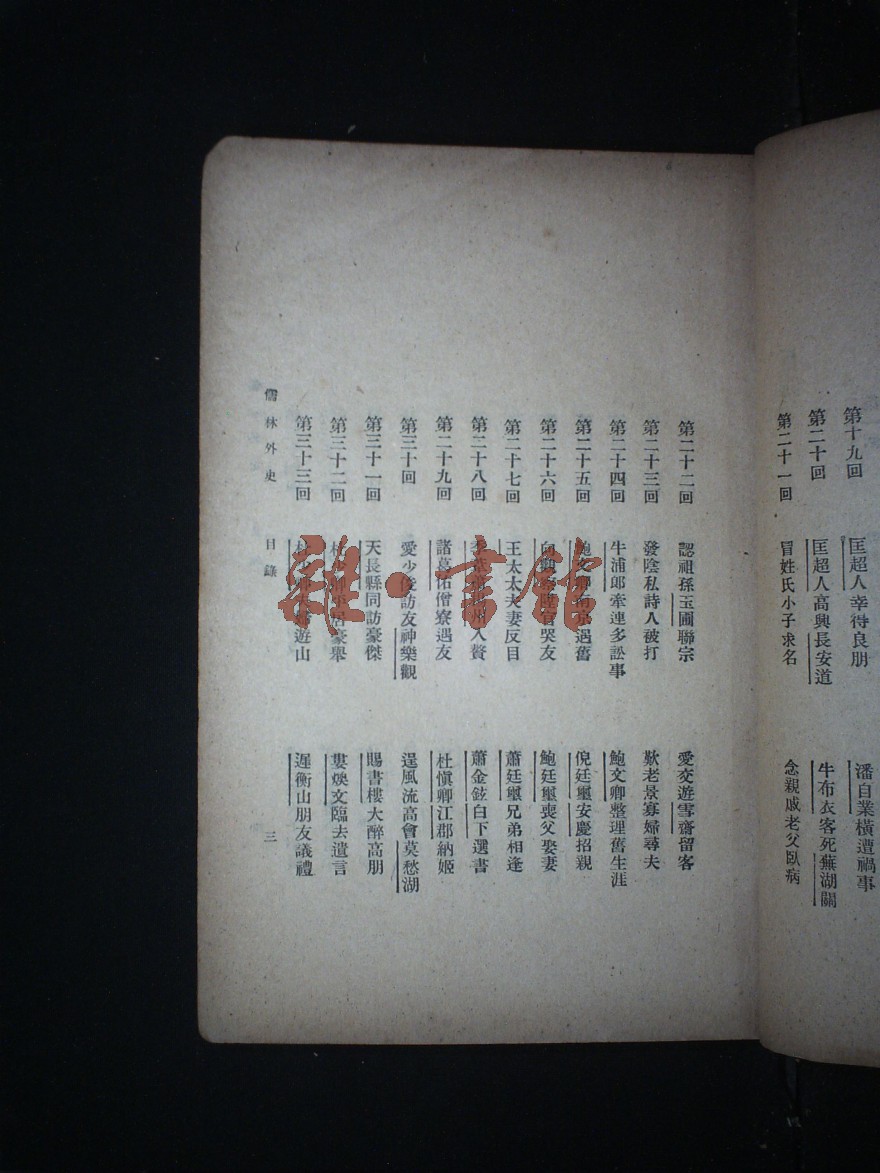 第十九回 匡超人幸得良朋 潘自業橫遭禍事
第二十回 匡超人高興長安道 牛布衣客死蕪湖關
第二十一回 冒姓氏小子求名 念親戚老父臥病
第二十二回 認祖孫玉圃聯宗 愛交遊雪齋留客
第二十三回 發陰私詩人被打 歎老景寡婦尋夫
第二十四回 牛浦郎牽連多訟事 鮑文卿整理舊生涯
第二十五回 鮑文卿南京遇舊 倪廷璽安慶招親
第二十六回 向觀察陞官哭友 鮑廷璽喪父娶妻
第二十七回 王太太夫妻反目 蕭廷璽兄弟相逢
第二十八回 季葦蕭揚州入贅 蕭金鉉白下選書
第二十九回 諸葛佑僧寮遇友 杜愼卿江郡納姬
第三十回 愛少俊訪友神樂觀 逞風流高會莫愁湖
第三十一回 天長縣同訪豪傑 賜書樓大醉高朋
第三十二回 杜少卿平居豪舉 婁煥文臨去遺言
第三十三回 杜少卿夫婦遊山 遲衡山朋友議禮
儒林外史 目錄 三
雜·書館